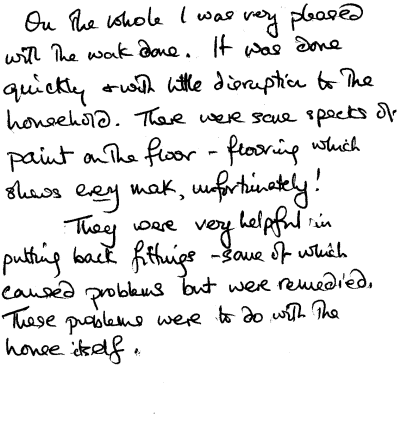 On the whole I was very pleased
with the work done. It was done
quickly & with little disruption to the
household. There were some specks of
paint on the floor - flooring which
shows every mark, unfortunately!
They were very helpful in
putting back fittings - some of which
caused problems but were remedied.
These problems were to do with the
house itself.